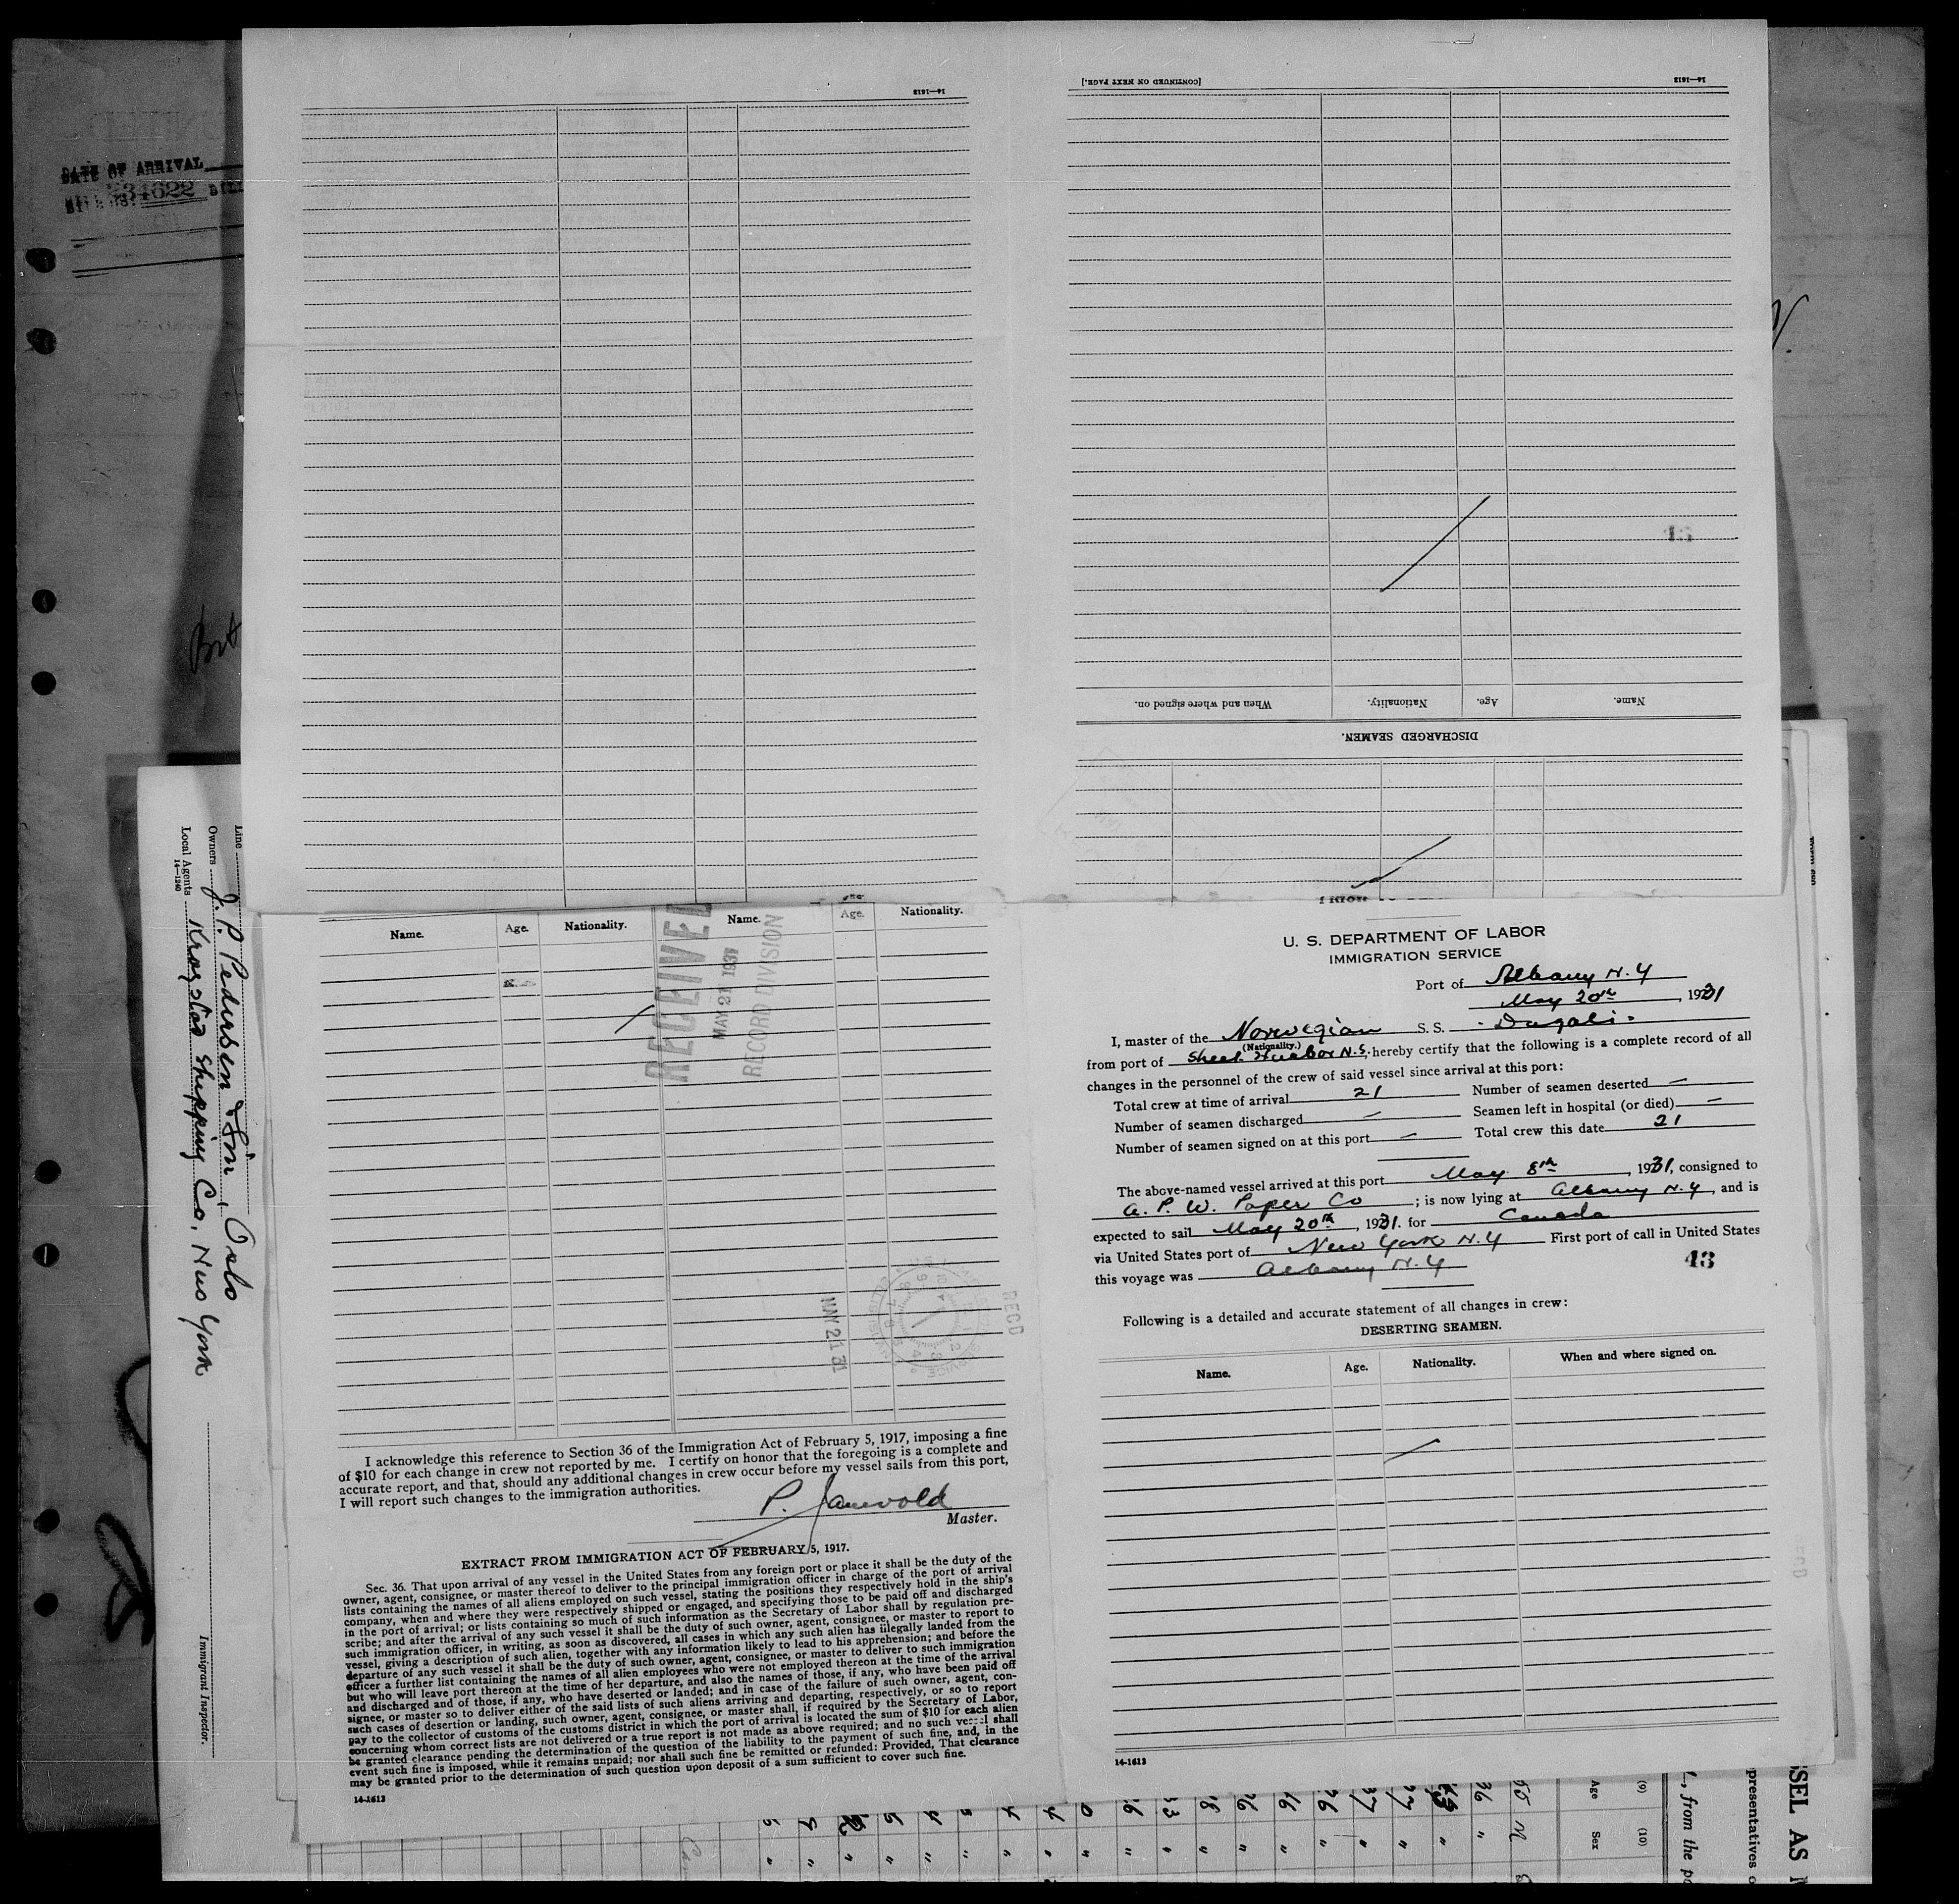 DATE OF ARRIVAL
234622
14—1613
[CONTINUED ON NEXT PAGE.]
14—1613
Name. Age. Nationality. When and where signed on.
DISCHARGED SEAMEN.
Line
Owners J. P. Pedersen & Søn, Oslo
Local Agents Krogstad Shipping Co, New York
14—1240
Immigrant Inspector.
Name. Age. Nationality. Name. Age. Nationality.
RECEIVED
MAY 21 1931
RECORD DIVISION
REC'D
MAY 21 31
I acknowledge this reference to Section 36 of the Immigration Act of February 5, 1917, imposing a fine
of $10 for each change in crew not reported by me. I certify on honor that the foregoing is a complete and
accurate report, and that, should any additional changes in crew occur before my vessel sails from this port,
I will report such changes to the immigration authorities.
P.
Master.
EXTRACT FROM IMMIGRATION ACT OF FEBRUARY 5, 1917.
Sec. 36. That upon arrival of any vessel in the United States from any foreign port or place it shall be the duty of the
owner, agent, consignee, or master thereof to deliver to the principal immigration officer in charge of the port of arrival
lists containing the names of all aliens employed on such vessel, stating the positions they respectively hold in the ship's
company, when and where they were respectively shipped or engaged, and specifying those to be paid off and discharged
in the port of arrival; or lists containing so much of such information as the Secretary of Labor shall by regulation pre-
scribe; and after the arrival of any such vessel it shall be the duty of such owner, agent, consignee, or master to report to
such immigration officer, in writing, as soon as discovered, all cases in which any such alien has illegally landed from the
vessel, giving a description of such alien, together with any information likely to lead to his apprehension; and before the
departure of any such vessel it shall be the duty of such owner, agent, consignee, or master to deliver to such immigration
officer a further list containing the names of all alien employees who were not employed thereon at the time of the arrival
but who will leave port thereon at the time of her departure, and also the names of those, if any, who have been paid off
and discharged and of those, if any, who have deserted or landed; and in case of the failure of such owner, agent, con-
signee, or master so to deliver either of the said lists of such aliens arriving and departing, respectively, or so to report
such cases of desertion or landing, such owner, agent, consignee, or master shall, if required by the Secretary of Labor,
pay to the collector of customs of the customs district in which the port of arrival is located the sum of $10 for each alien
concerning whom correct lists are not delivered or a true report is not made as above required; and no such vessel shall
be granted clearance pending the determination of the question of the liability to the payment of such fine, and, in the
event such fine is imposed, while it remains unpaid; nor shall such fine be remitted or refunded: Provided, That clearance
may be granted prior to the determination of such question upon deposit of a sum sufficient to cover such fine.
14-1613
U. S. DEPARTMENT OF LABOR
IMMIGRATION SERVICE
Port of Albany N.Y
May 20th, 1931
I, master of the Norwegian S. S. "Dugali"
(Nationality.)
from port of Sheet Harbor N.S. hereby certify that the following is a complete record of all
changes in the personnel of the crew of said vessel since arrival at this port:
Total crew at time of arrival 21 Number of seamen deserted —
Number of seamen discharged — Seamen left in hospital (or died) —
Number of seamen signed on at this port — Total crew this date 21
The above-named vessel arrived at this port May 8th, 1931, consigned to
A. P. W. Paper Co; is now lying at Albany N.Y, and is
expected to sail May 20th, 1931. for Canada
via United States port of New York N.Y First port of call in United States
this voyage was Albany N.Y
43
Following is a detailed and accurate statement of all changes in crew:
DESERTING SEAMEN.
Name. Age. Nationality. When and where signed on.
14-1613
(9) (10)
Age Sex